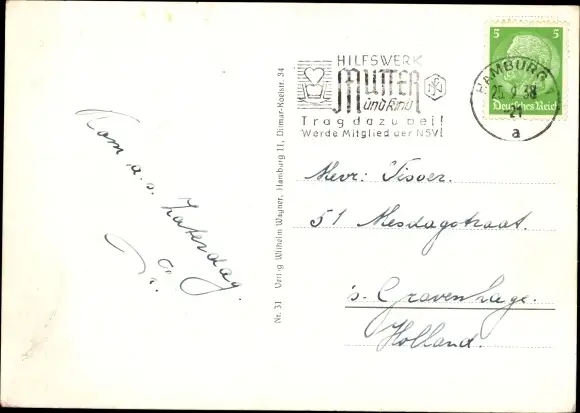 Kom a.s. Zaterdag.
HILFSWERK
MUTTER
und Kind
Trag dazu bei!
Werde Mitglied der NSV!
5 5
Deutsches Reich
HAMBURG
21
a
Nr. 31 Verlag Wilhelm Wagner, Hamburg 11, Ditmar-Koelstr. 34
Mevr: Visser.
51 Mesdagstraat.
's. Gravenhage.
Holland.